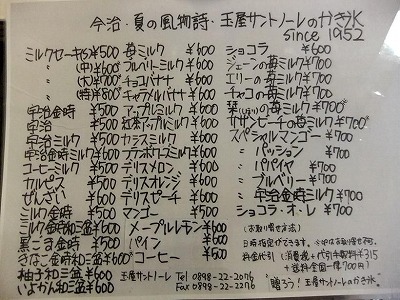 今治・夏の風物詩・玉屋サントノーレのかき氷
since 1952
ミルクセーキ(小)¥500
〃 (中)¥600
〃 (大)¥700
〃 (特)¥800
宇治金時 ¥500
宇治 ¥500
宇治ミルク ¥500
宇治金時ミルク ¥600
コーヒーミルク ¥500
カルピス ¥500
ぜんざい ¥600
ミルク金時 ¥500
ミルク金時和三盆 ¥600
黒ごま金時 ¥500
きなこ金時和三盆¥600
柚子和三盆 ¥600
いよかん和三盆 ¥600
苺ミルク ¥600
ブルベリーミルク ¥600
チョコバナナ ¥600
キャラメルバナナ ¥600
アップルミルク ¥600
紅茶アップルミルク ¥600
カシスミルク ¥600
フランボワーズミルク¥600
デリスメロン ¥600
デリスオレンジ ¥600
デリスピーチ ¥600
マンゴー ¥600
メープルレチノ ¥600
パイン ¥600
コーヒー ¥500
玉屋サントノーレ Tel 0898-22-2076
Fax 0898-22-2276
ショコラ ¥600
ジェーンの苺ミルク ¥700
エリーの苺ミルク ¥700
チャコの苺ミルク ¥700
栞(しおり)の苺ミルク¥700
サザンビーチの苺ミルク¥700
スペシャルマンゴー ¥700
〃 パッション ¥700
〃 パパイヤ ¥700
〃 ブルベリー ¥700
〃 宇治金時ミルク ¥700
ショコラ・オ・レ ¥700
(お取り寄せ方法)
日時指定ができます。
料金代引(消費税+代引手数料¥315
+送料全国一律700円)
"贈ろう!玉屋サントノーレのかき氷"